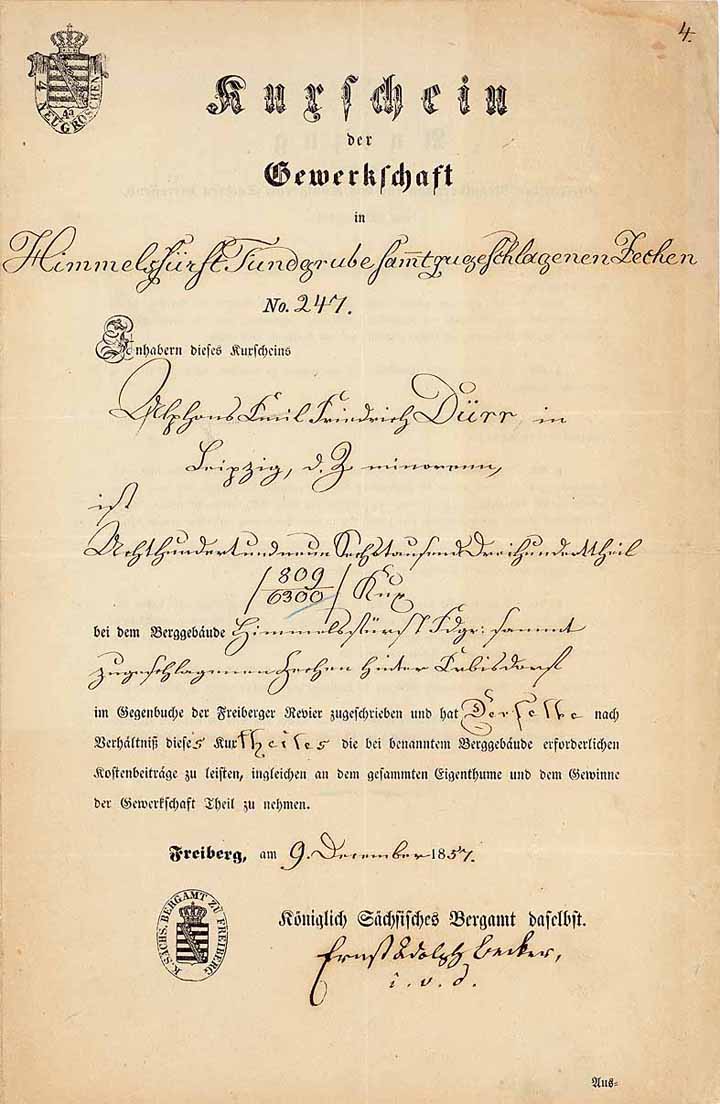 4.
4 NEUGROSCHEN
Kuxschein
der
Gewerkschaft
in
Himmelsfürst Fundgrube sam̅t zugeschlagenen Zechen
No. 247.
Inhabern dieses Kuxscheins
Alphons Emil Friedrich Dürr, in
Leipzig, d. Z. minorenn,
ist
Achthundertundneun Sechstausend Dreihunderttheil
/ 809/6300 / Kux
bei dem Berggebäude Himmelsfürst Fdgr: sammt
zugeschlagenen Zechen hinter Erbisdorf
im Gegenbuche der Freiberger Revier zugeschrieben und hat Derselbe nach
Verhältniß dieses Kuxtheiles die bei benanntem Berggebäude erforderlichen
Kostenbeiträge zu leisten, ingleichen an dem gesammten Eigenthume und dem Gewinne
der Gewerkschaft Theil zu nehmen.
Freiberg, am 9. December 1857.
K. SÄCHS. BERGAMT ZU FREIBERG
Königlich Sächsisches Bergamt daselbst.
Ernst Adolph Becker,
i. v. d.
Aus-